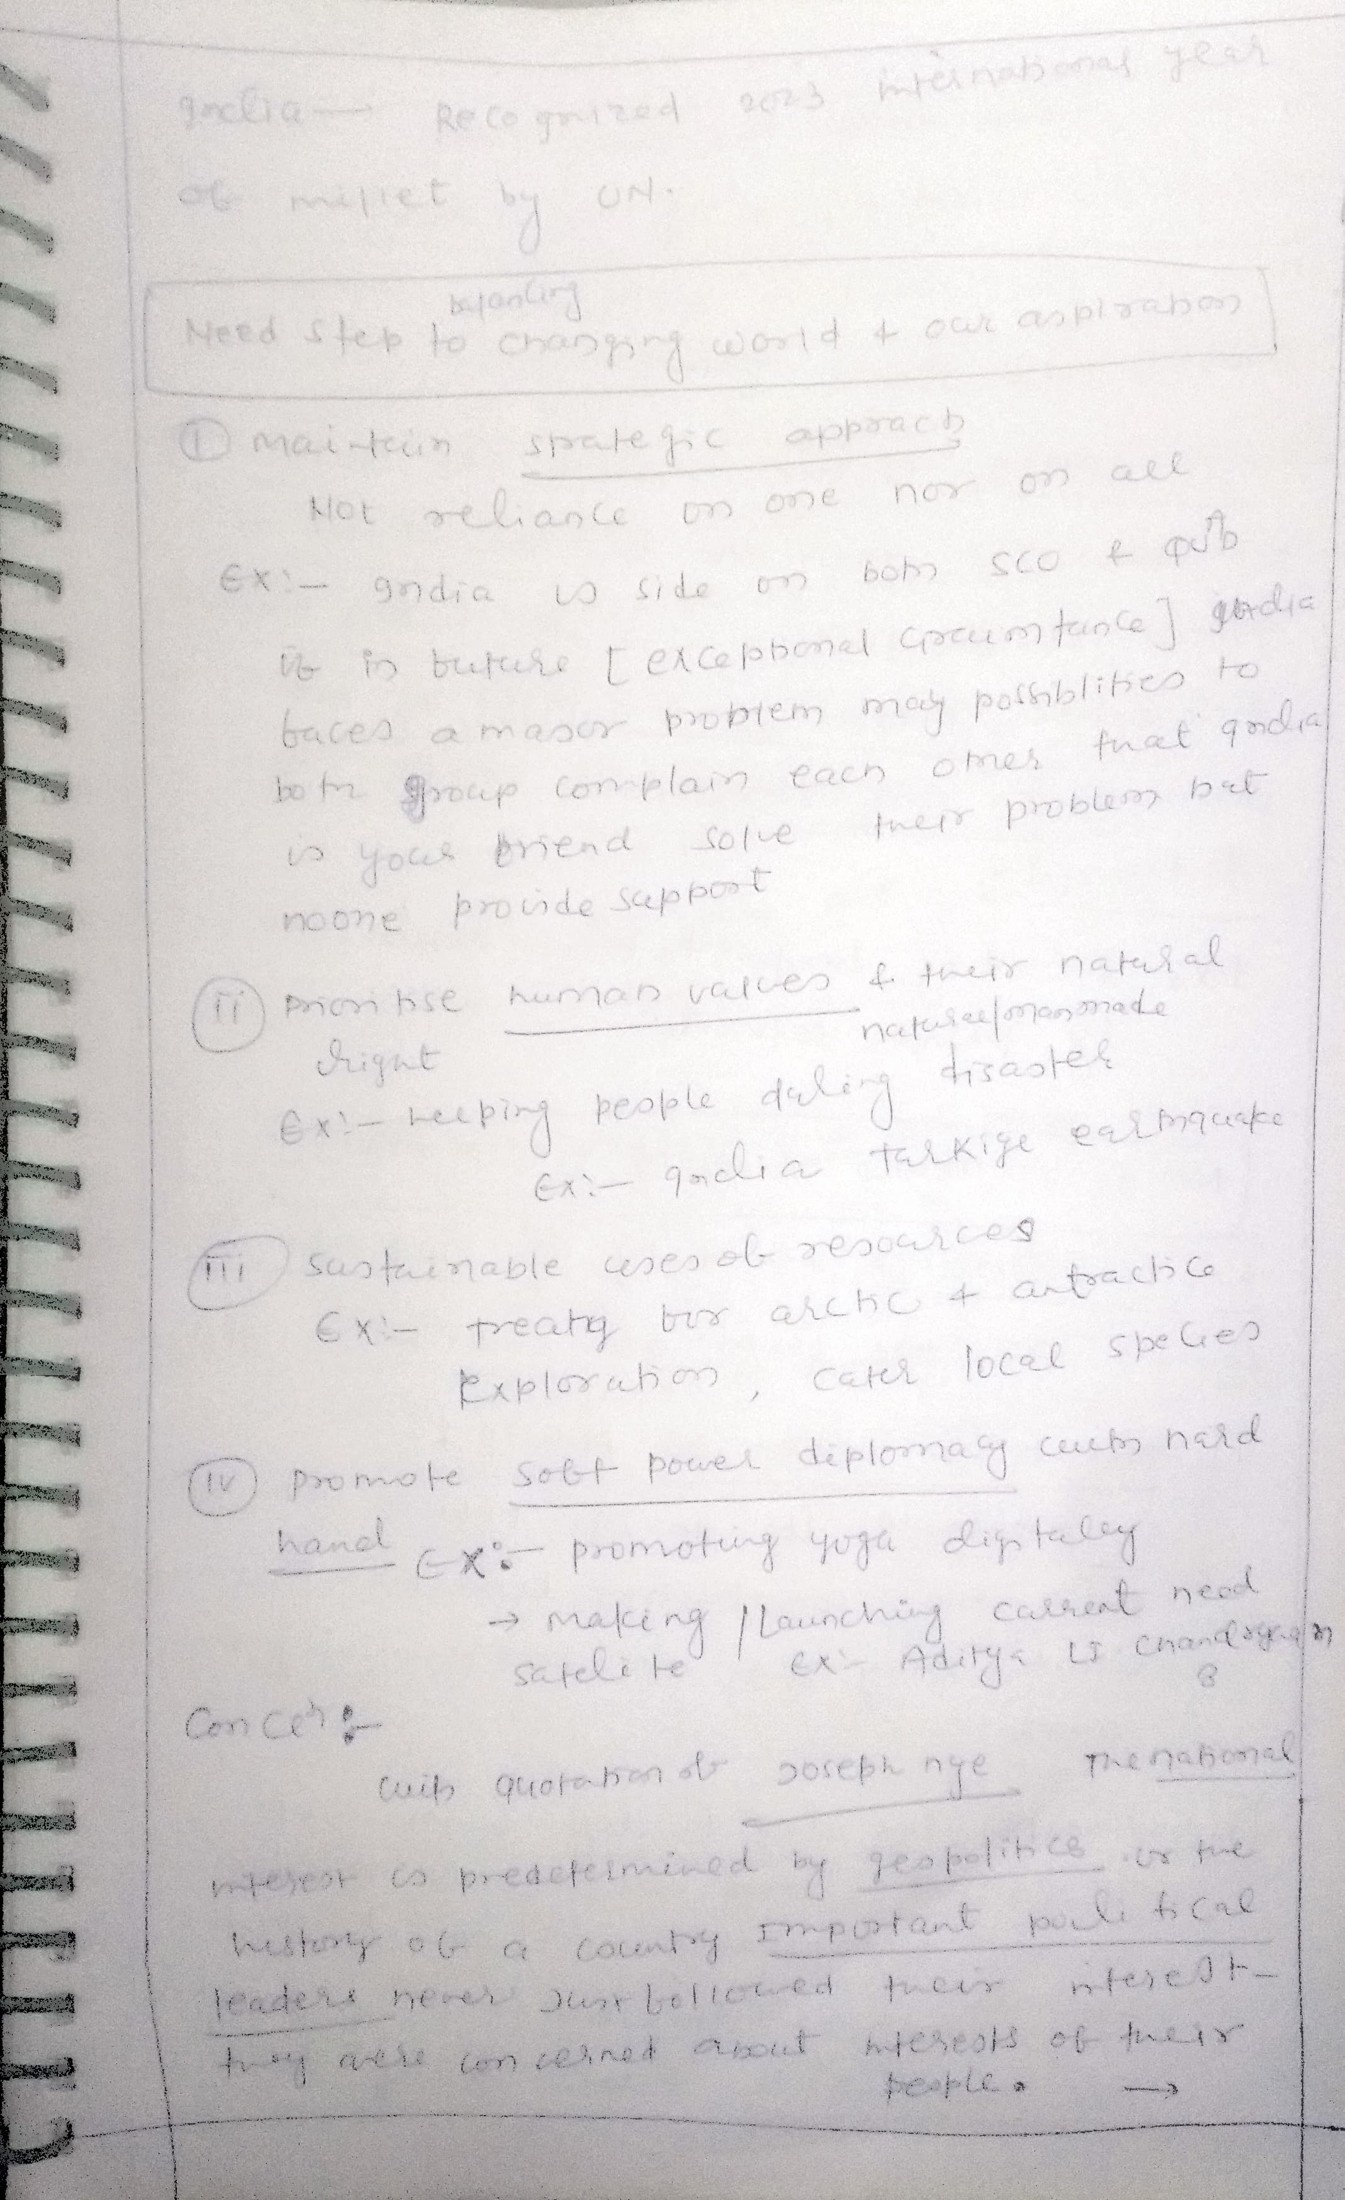 India — Recognized 2023 international year
of millet by UN.
balancing
Need step to changing world & our aspiration
① Maintain strategic approach
Not reliance on one nor on all
Ex:- India is side on both SCO & QUAD
if in future [exceptional circumstance] India
faces a major problem may possiblities to
both group complain each other that India
is your friend solve their problem but
noone provide support
(ii) Prioritise human values & their natural
right
natural/manmade
Ex:- helping people during disaster
Ex:- India Turkiye earthquake
(iii) Sustainable uses of resources
Ex:- treaty for arctic & antractice
Exploration, cater local species
(iv) promote soft power diplomacy with hard
hand Ex:- promoting yoga digitally
→ making / Launching current need
satelite Ex:- Aditya L1 Chandrayaan
3
Conclu:-
with quotation of Joseph nye The national
interest is predetermined by geopolitics or the
history of a country Important political
leaders never just followed their interest-
they were concerned about interests of their
people. →